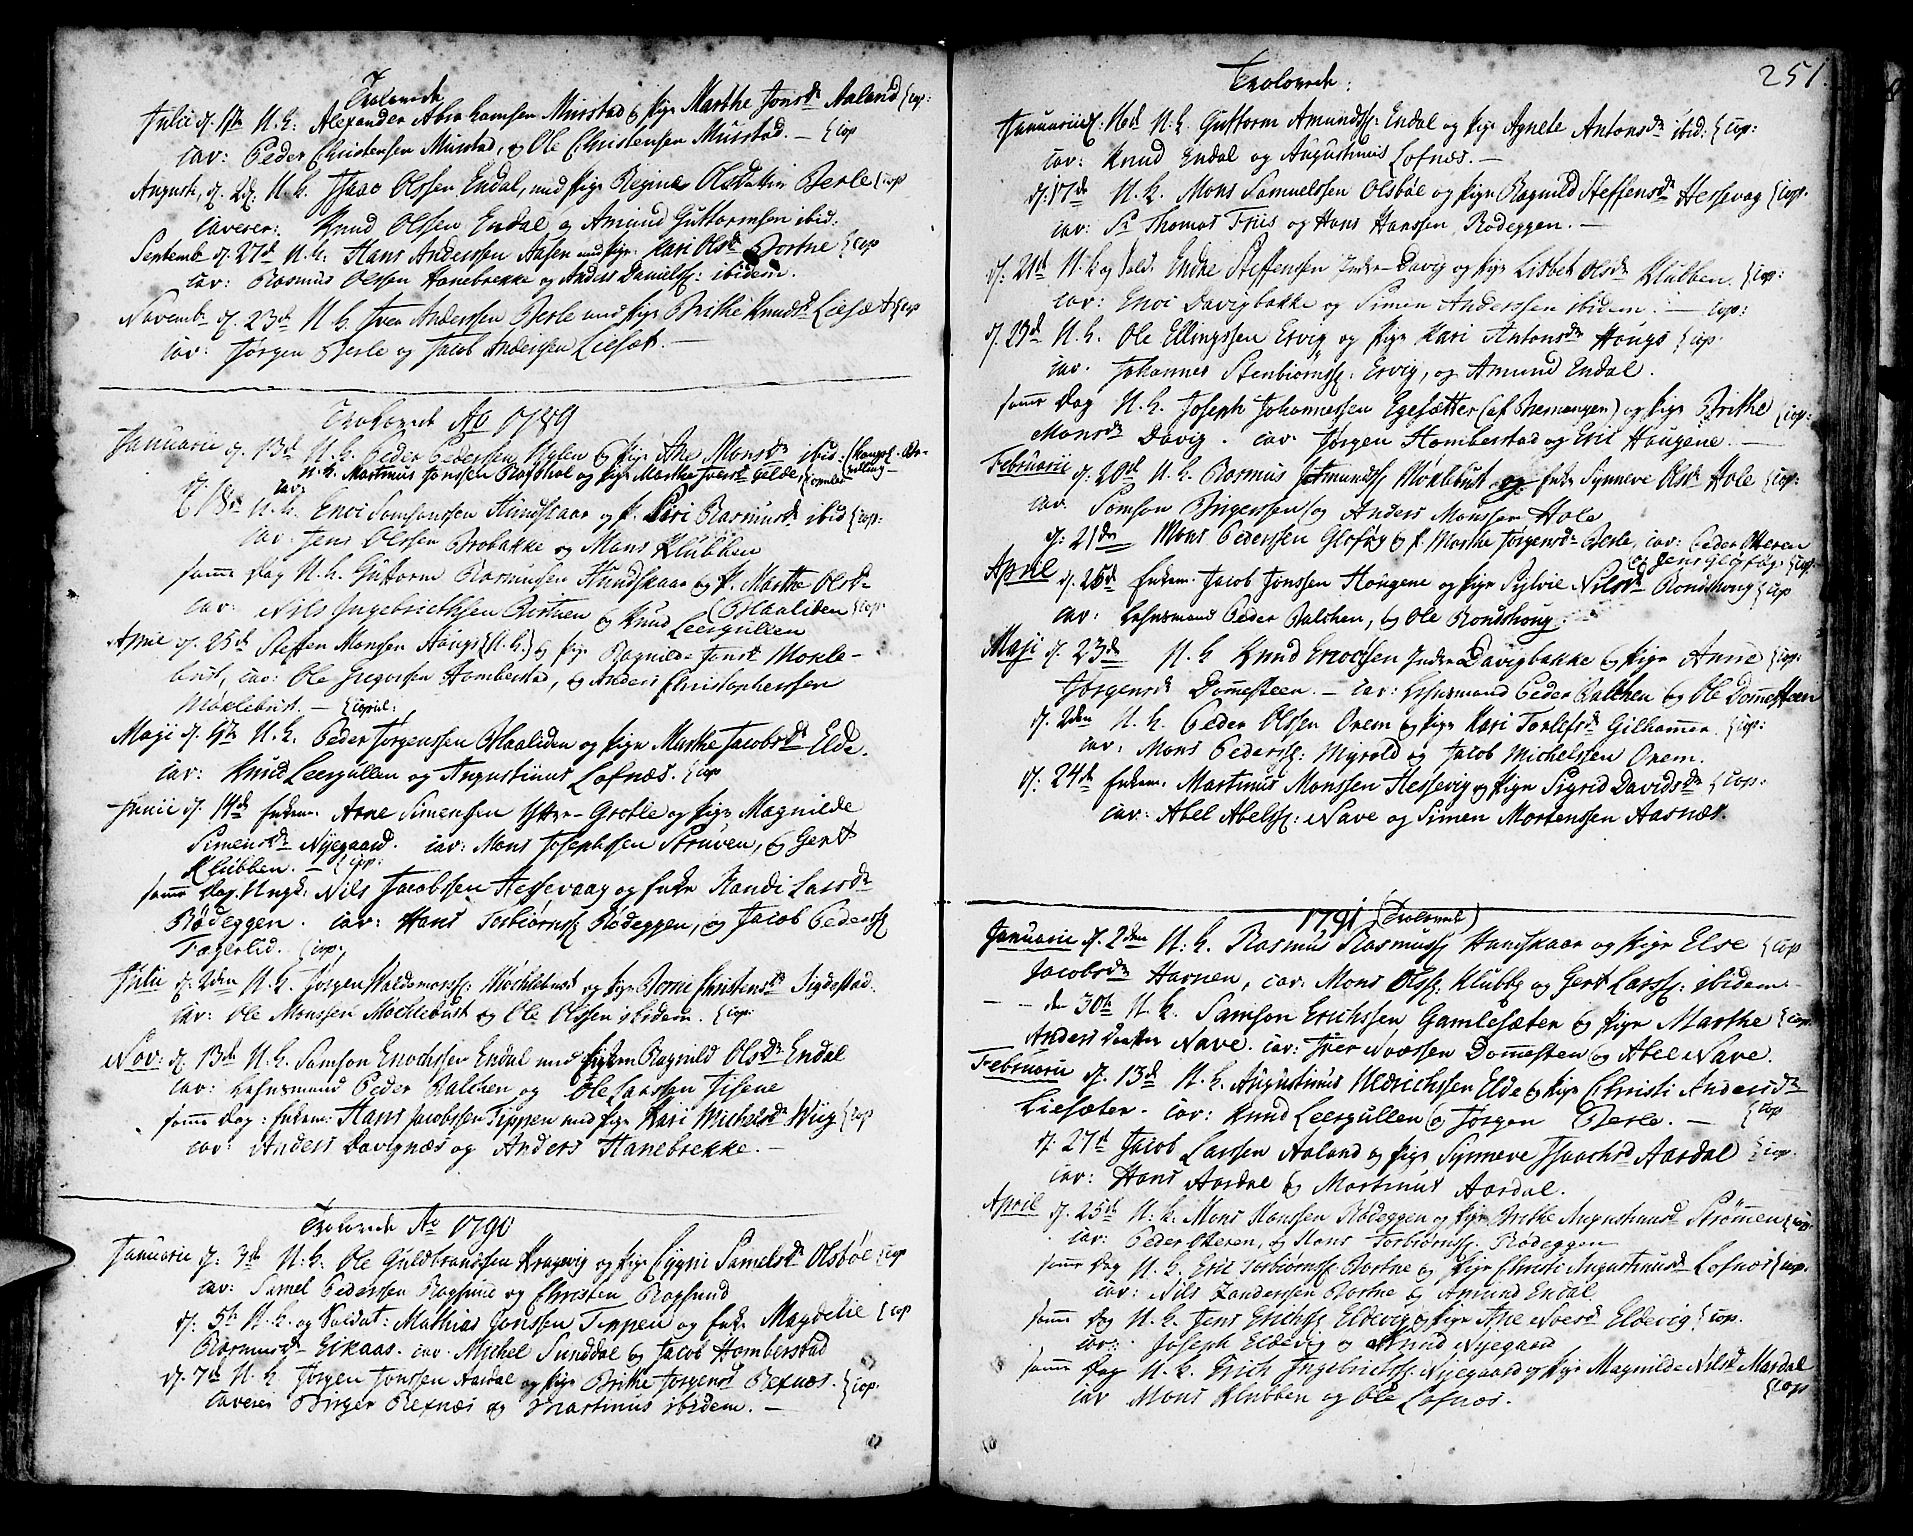 Trolovede
Julii d. 1ste U. K. Alexander Abrahamsen Murstad & Pige Marthe Jonsdr Aaland {cop:
cav: Peder Christensen Murstad, og Ole Christensen Murstad. — {cop
Augusti, d. 2d. U. K. Isaac Olssen Endal, med Pige Regine Olsdatter Berle {cop
caverer: Knud Olssen Endal og Amund Guttormsen ibid:
Septembr d. 27d U. K. Hans Anderssen Aasen med Pige Kari Olsdr Bortne {cop
cav: Rasmus Olssen Hanebrekke og Anders Danielss: ibidem.
Novembr d. 23d U. K. Iver Anderssen Berle med Pige Brithe Knudsdr Liesæt {cop
cav: Jørgen Berle og Jacob Anderssen Liesæt. —
Trolovede Ao 1789
Januarii d. 13d U. K. Peder Pedersen Nylen & Pige Ane Monsdr ibid:
U. K. Martinus Jonssen Rogshol og Pige Marthe Iversdr Gelde,
d. 18d U. K. Enoi Samsonssen Hundskaar og P. Siri Rasmusdr ibid {cop:
cav: Jens Olssen Brobakke og Mons Klubben
samme Dag U. K. Guttorm Rasmussen Hundskaar og P. Marthe Olsdr
cav: Nils Ingebrictssen Bortnen & Knud Leergullen (Blaaliden {cop:
April d. 25d Steffen Monsen Haugs {U. K.} og Pige Ragnilde Jonsdr Møkle-
bust, cav: Ole Gregorsen Homberstad, & Anders Christophersen
Møklebust. — {copul:
Maji d. 9de U. K. Peder Jørgenssen Blaaliden og Pige Marthe Jacobsdr Elde.
cav: Knud Leergullen og Augustinus Lofnæs. {cop
Junii d. 14de Enkem. Arne Simenssen Ytter-Grotle og Pige Magnilde
Simensdr Nyegaard. cav: Mons Josephssen Struven, & Gert
Klubben. — {cop:
samme Dag. Ungk: Nils Jacobssen Hessevaag og Enke Randi Larsdr
Rødeggen. cav: Hans Torbiørnss. Rødeggen, og Jacob Pederss
Fagerlid. {cop:
Julii d. 2den U. K. Jørgen Waldemorss: Mochlebust og Pige Børni Christensdr Sigdestad.
cav: Ole Monssen Mochlebust og Ole Olssen ibidem. {cop:
Nov: d. 13de U. K. Samson Enochssen Endal med Pigen Ragnild Olsdr Endal
cav: Lehnsmand Peder Balchen og Ole Larssen Isene
samme Dag: Enkem: Hans Jacobssen Tippen med Pige Kari Michelsdr Wiig {cop
cav: Anders Davignæs og Anders Hanebrekke. —
Trolovede Ao 1790
Januarii d. 3de U. K. Ole Guldbranssen Kragevig og Pige Cygni Samelsdr Olsbøe {cop
cav: Samel Pederssen Rogsund og Christen Rogsund
d. 5t U. K. og Soldat: Mathias Jonssen Tippen og Enke Magdelie {cop
Rasmusdr Eikaas. cav. Michel Sunddal & Jacob Homberstad
d. 7de U. K. Jørgen Jonssen Aardal og Pige Brithe Jørgensdr Rexnæs. {cop.
caverer Birger Rexnæs og Martinus ibidem. —
251.
Trolovede:
Januarii d: 16de U. K. Guttorm Amundss: Endal og Pige Agnete Antonsdr ibid: {cop:
cav: Knud Endal og Augustinus Lofnæs. —
d: 17de U. K. Mons Samuelssen Olsbøe og Pige Ragnild Steffensdr Hessevag {cop.
cav: Sr Thomas Friis og Hans Hanssen Rødeggen. —
d. 21d U. K. og Sold. Endre Steffenssen Indre-Davig og Pige Lisbet Olsdr Klubben. {cop:
cav: Enoi Davigbakke og Simen Anderssen ibidem. — cop:
d. 23de U. K. Ole Ellingssen Ervig og Pige Kari Antonsdr Haugs {cop:
cav. Johannes Stenbiørnss: Ervig, og Amund Endal.
samme Dag U. K. Joseph Johannessen Egesætter (af Bremangen) og Pige Brithe {cop:
Monsdr Davig. cav. Jørgen Homberstad og Eric Haugene. —
Februarii d. 20de U. K. Rasmus Jetmundss. Møklebust og Enke Synneve Olsdr Hole {cop:
cav. Samson Birgerssen & Anders Monssen Hole
d: 21de Mons Pederssen Gloføg & P. Marthe Jørgensdr Berle, cav: Peder Otteren
& Jens Gloføg. {cop:
April d. 25d Enkem. Jacob Jonssen Haugene og Pige Sylvie Nilsdr Rondehoug {cop
cav: Lehnsmand Peder Balchen, & Ole Rondehoug.
Maji d. 23de U. K Knud Enochssen Indre Davigbakke & Pige Anne {cop:
Jørgensdr Domesteen. — cav: Lehnsmand Peder Balchen & Ole Domesteen
d. 2den U. K. Peder Olssen Orem & Pige Kari Torlefsdr Gilhammer. {cop:
cav: Mons Pederss: Myrold og Jacob Michelssen Orem.
d: 24de Enkem. Martinus Monssen Hessevig og Pige Sigrid Davidsdr {cop:
cav: Abel Abelss: Nave og Simen Mortenssen Aasnæs.
1791 (Trolovede)
Januarii d. 2den U. K. Rasmus Rasmuss. Hundskaar og Pige Else {cop
Jacobsdr Havnen, cav: Mons Olss. Klubbe og Gert Larss: ibidem.
— — den 30te U. K. Samson Erichssen Gamlesæter & Pige Marthe {cop:
Anders Datter Nave. cav: Iver Noæssen Domesten & Abel Nave.
Februarii d. 13de U. K. Augustinus Uldrichssen Elde & Pige Christi Andersdr
Liesæter. cav: Knud Leergullen & Jørgen Berle. — {cop
d. 27d Jacob Larssen Aaland og Pige Synneve Isaachsdr Aardal {cop.
cav: Hans Aardal & Martinus Aardal.
April d. 25de U. K. Mons Hanssen Rødeggen og Pige Brithe Augustinusdr Strømmen {cop:
cav: Peder Otteren, & Mons Torbiørnss. Rødeggen
samme Dag U. K. Eric Torbiørnss. Bortne & Pige Christi Augustinusdr Lofnæs {cop.
cav: Nils Zanderssen Bortne & Amund Endal
samme Dag U. K. Jens Erichss. Eldevig & Pige Ane Noersdr Eldevig {cop.
cav: Joseph Eldevig og Knud Nyegaard
samme Dag U. K. Erich Ingebrictss. Nyegaard & Pige Magnilde Nilsdr Mardal
cav Mons Klubben og Ole Lofnæs. {cop